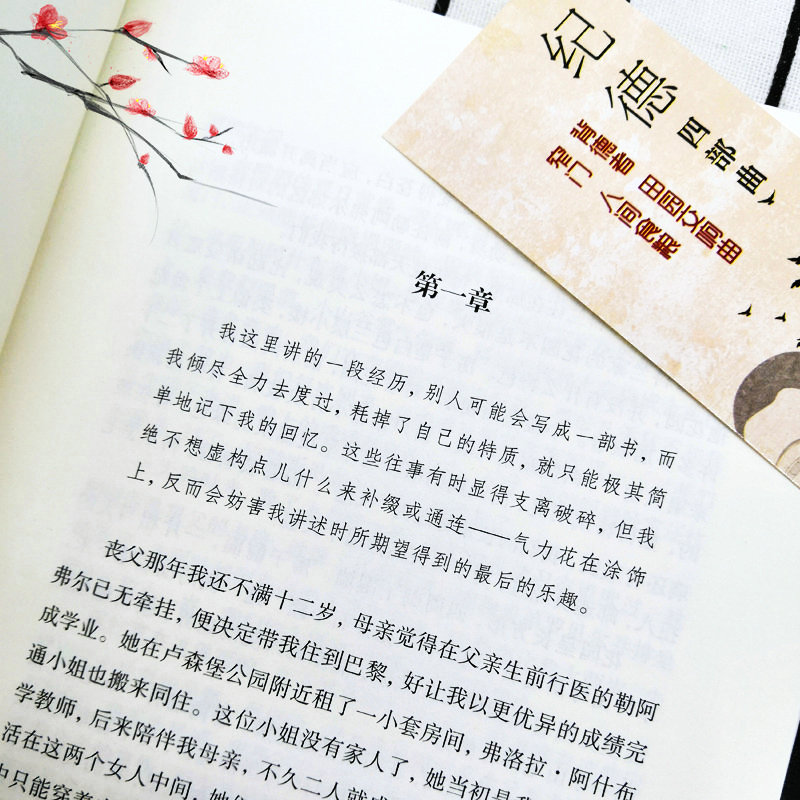 纪德四部曲
背德者 田园交响曲
窄门 人间食粮
第一章
我这里讲的一段经历，别人可能会写成一部书，而
我倾尽全力去度过，耗掉了自己的特质，就只能极其简
单地记下我的回忆。这些往事有时显得支离破碎，但我
绝不想虚构点儿什么来补缀或通连——气力花在涂饰
上，反而会妨害我讲述时所期望得到的最后的乐趣。
丧父那年我还不满十二岁，母亲觉得在父亲生前行医的勒阿
弗尔已无牵挂，便决定带我住到巴黎，好让我以更优异的成绩完
成学业。她在卢森堡公园附近租了一小套房间，弗洛拉·阿什布
通小姐也搬来同住。这位小姐没有家人了，她当初是
学教师，后来陪伴我母亲，不久二人就
活在这两个女人中间，她
只能穿着